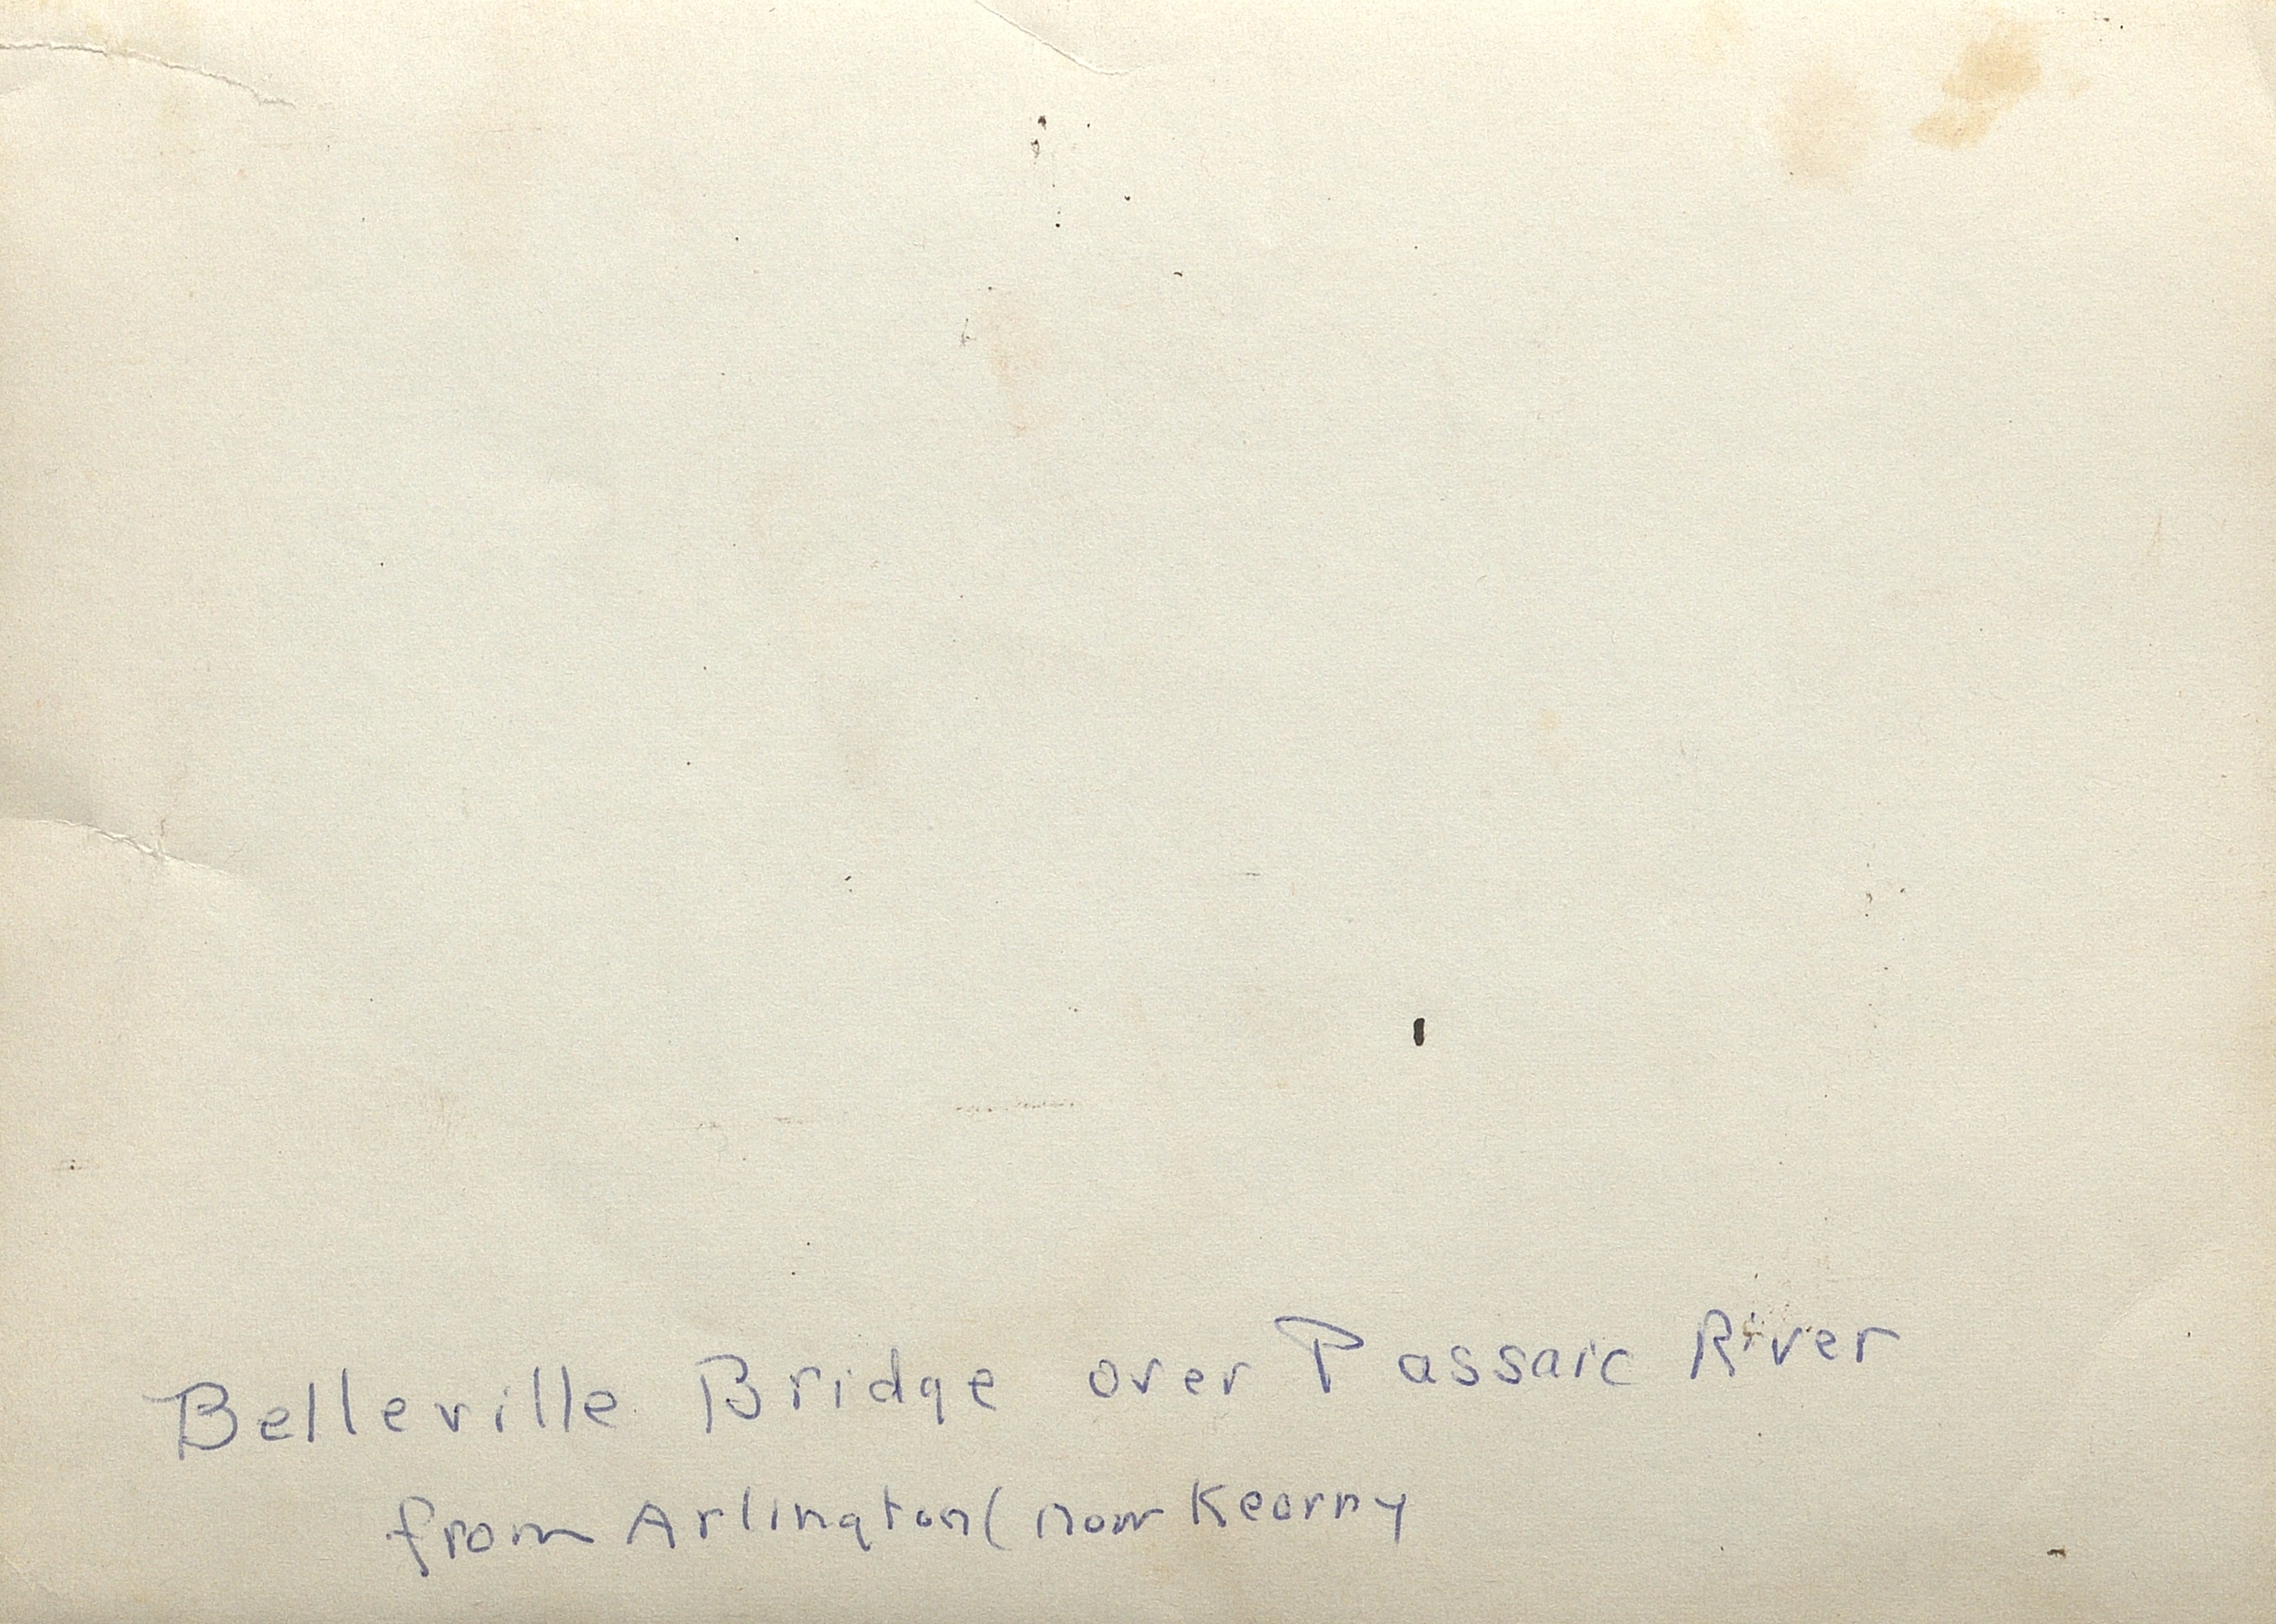 Belleville Bridge over Passaic River
from Arlington ( now Kearny